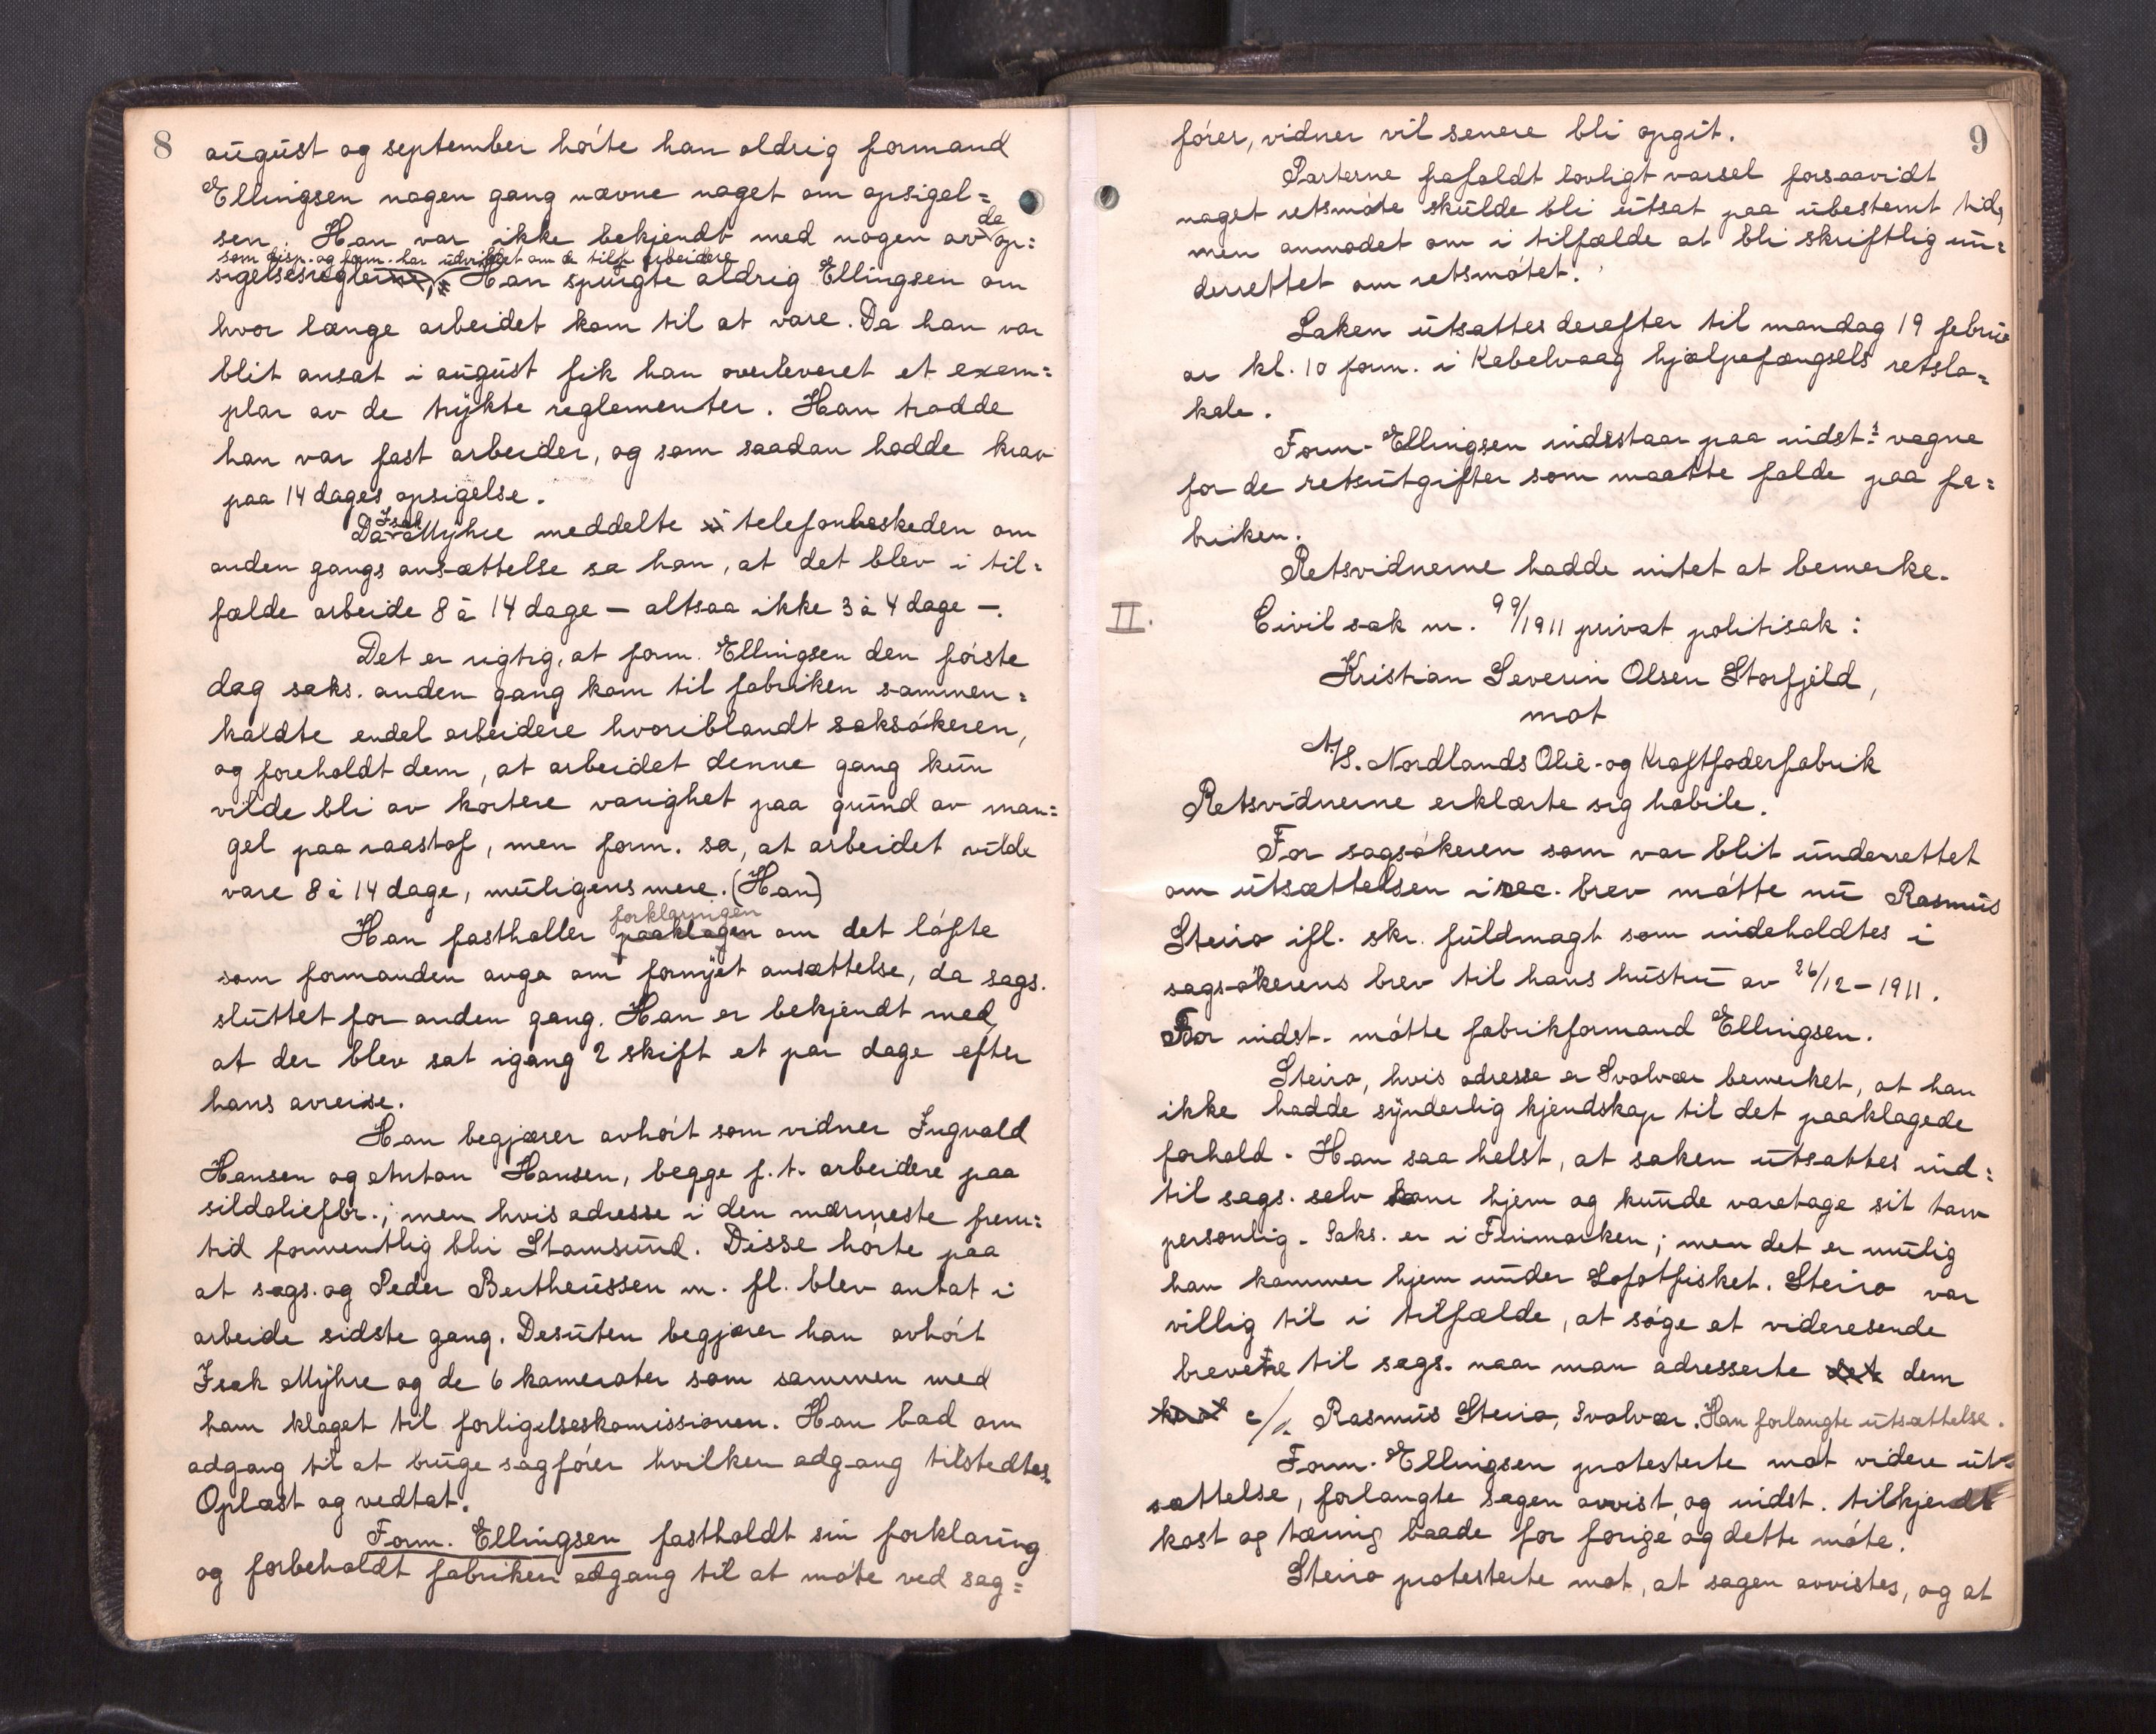 8
august og september hørte han aldrig formand
Ellingsen nogen gang nævne noget om opsigel=
sen. Han var ikke bekjendt med nogen av de op=
som disp. og form. har utviklet om de arbeidere
sigelsesreglerne. Han spurgte aldrig Ellingsen om
hvor længe arbeidet kom til at vare. Da han var
blit ansat i august fik han overleveret et exem=
plar av de trykte reglementer. Han trodde
han var fast arbeider, og som saadan hadde krav
paa 14 dages opsigelse.
Da Isak Myhre meddelte telefonbeskeden om
anden gangs ansættelse sa han, at det blev i til=
fælde arbeide 8 à 14 dage – altsaa ikke 3 à 4 dage –.
Det er rigtig, at form. Ellingsen den første
dag saks. anden gang kom til fabriken sammen=
kaldte endel arbeidere hvoriblandt saksøkeren,
og foreholdt dem, at arbeidet denne gang kun
vilde bli av kortere varighet paa grund av man=
gel paa raastof, men form. sa, at arbeidet vilde
vare 8 à 14 dage, muligens mere. (Han)
Han fastholler paaklagen forklaringen om det løfte
som formanden avga om fornyet ansættelse, da sags.
sluttet for anden gang. Han er bekjendt med,
at der blev sat igang 2 skift et par dage efter
hans avreise.
Han begjærer avhørt som vidner Ingvald
Hansen og Anton Hansen, begge f.t. arbeidere paa
sildoliefbr.; men hvis adresse i den nærmeste frem=
tid formentlig bli Stamsund. Disse hørte paa
at sags. og Peder Bertheussen m. fl. blev antat i
arbeide sidste gang. Desuten begjærer han avhørt
Isak Myhre og de 6 kamerater som sammen med
ham klaget til forligelseskomissionen. Han bad om
adgang til at bruge sagfører hvilken adgang tilstedtes.
Oplæst og vedtat.
Form. Ellingsen fastholdt sin forklaring
og forbeholdt fabriken adgang til at møte ved sag=
9
fører, vidner vil senere bli opgit.
Parterne frafaldt lovligt varsel forsaavidt
noget retsmøte skulde bli utsat paa ubestemt tid,
men anmodet om i tilfælde at bli skriftlig un=
derrettet om retsmøtet.
Saken utsattes derefter til mandag 19 febru
ar kl. 10 form. i Kabelvaag hjælpefængsels retslo=
kale.
Form. Ellingsen indestaar paa indst.s vegne
for de retsutgifter som maatte falde paa fa=
briken.
Retsvidnerne hadde intet at bemerke.
II.
Civil sak nr. 99/1911 privat politisak:
Kristian Severin Olsen Storfjeld,
mot
A/S. Nordlands Olie- og Kraftfoderfabrik
Retsvidnerne erklærte sig habile.
For sagsøkeren som var blit underrettet
om utsættelsen i rec. brev møtte nu Rasmus
Steiro ifl. skr. fuldmagt som indeholdtes i
sagsøkerens brev til hans hustru av 26/12-1911.
For indst. møtte fabrikformand Ellingsen.
Steiro, hvis adresse er Svolvær bemerket, at han
ikke hadde synderlig kjendskap til det paaklagede
forhold. Han saa helst, at saken utsattes ind=
til sags. selv kom hjem og kunde varetage sit tarv
personlig. Saks. er i Finmarken; men det er mulig
han kommer hjem under Lofotfisket. Steiro var
villig til i tilfælde, at søge at videresende
brevene til sags. naar man adresserte det dem
c/o. Rasmus Steiro, Svolvær. Han forlangte utsættelse.
Form. Ellingsen protesterte mot videre ut=
sættelse, forlangte sagen avvist og indst. tilkjendt
kost og tæring baade for forige og dette møte.
Steiro protesterte mot, at sagen avvistes, og at